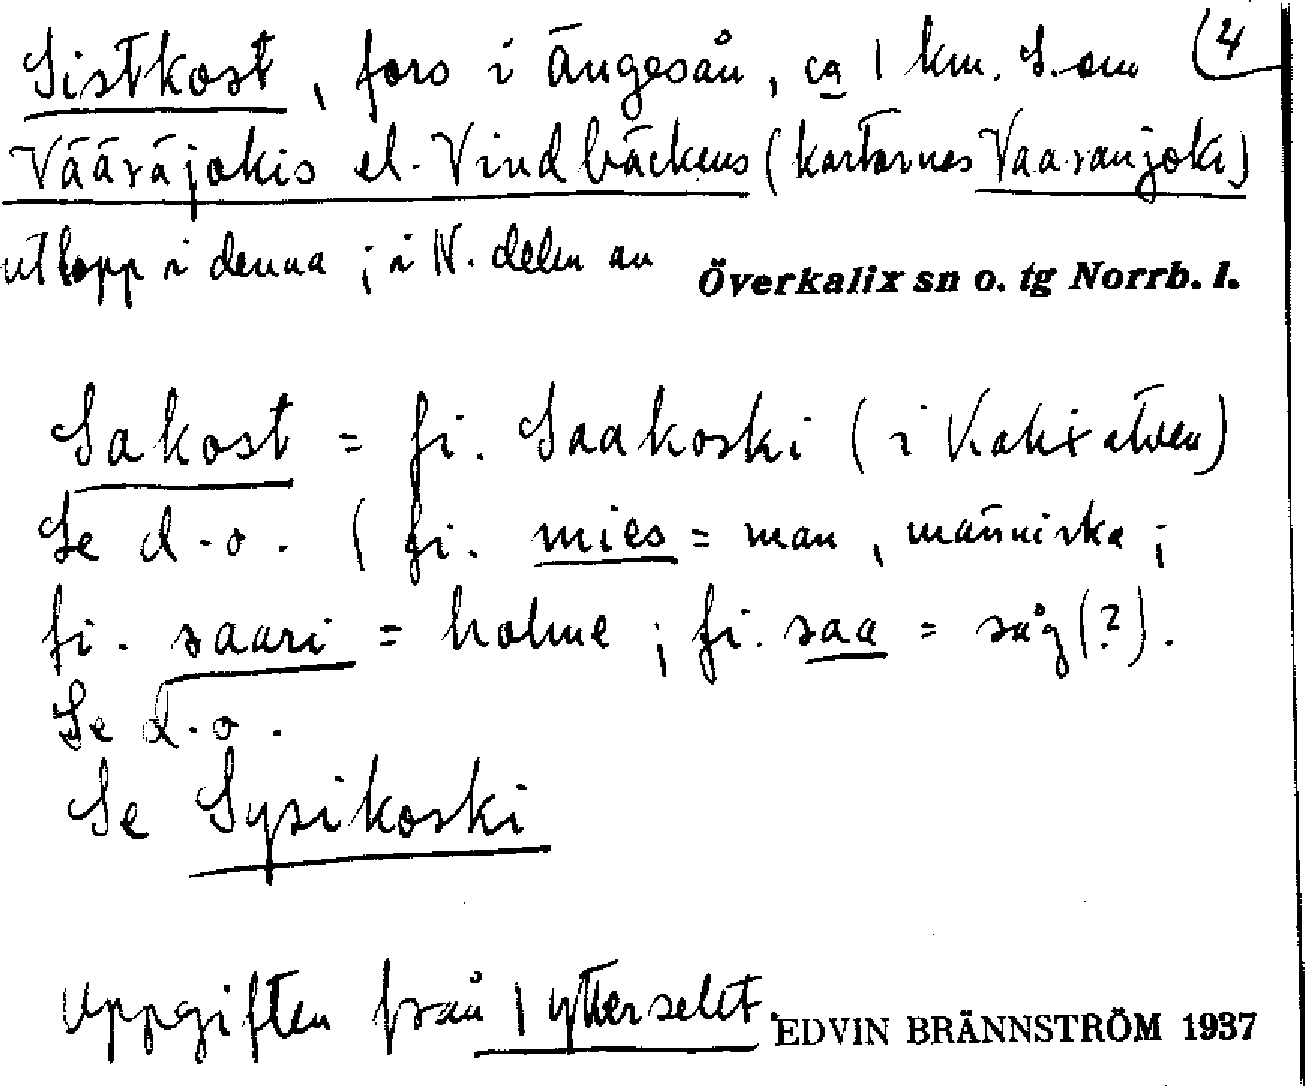 Sistkost, fors i Ängesån, ca 1 km. S. om (4
Vääräjokis el. Vindbäckens (kartornas Vaaranjoki)
utlopp i denna; i N. delen av Överkalix sn o. tg Norrb. l.
Sakost = fi. Saakoski (i Kalixälven)
Se d.o. (fi. mies = man, människa;
fi. saari = holme; fi. saa = såg(?).
Se d.o.
Se Sysikoski
Uppgiften från Ytterselet. EDVIN BRÄNNSTRÖM 1937